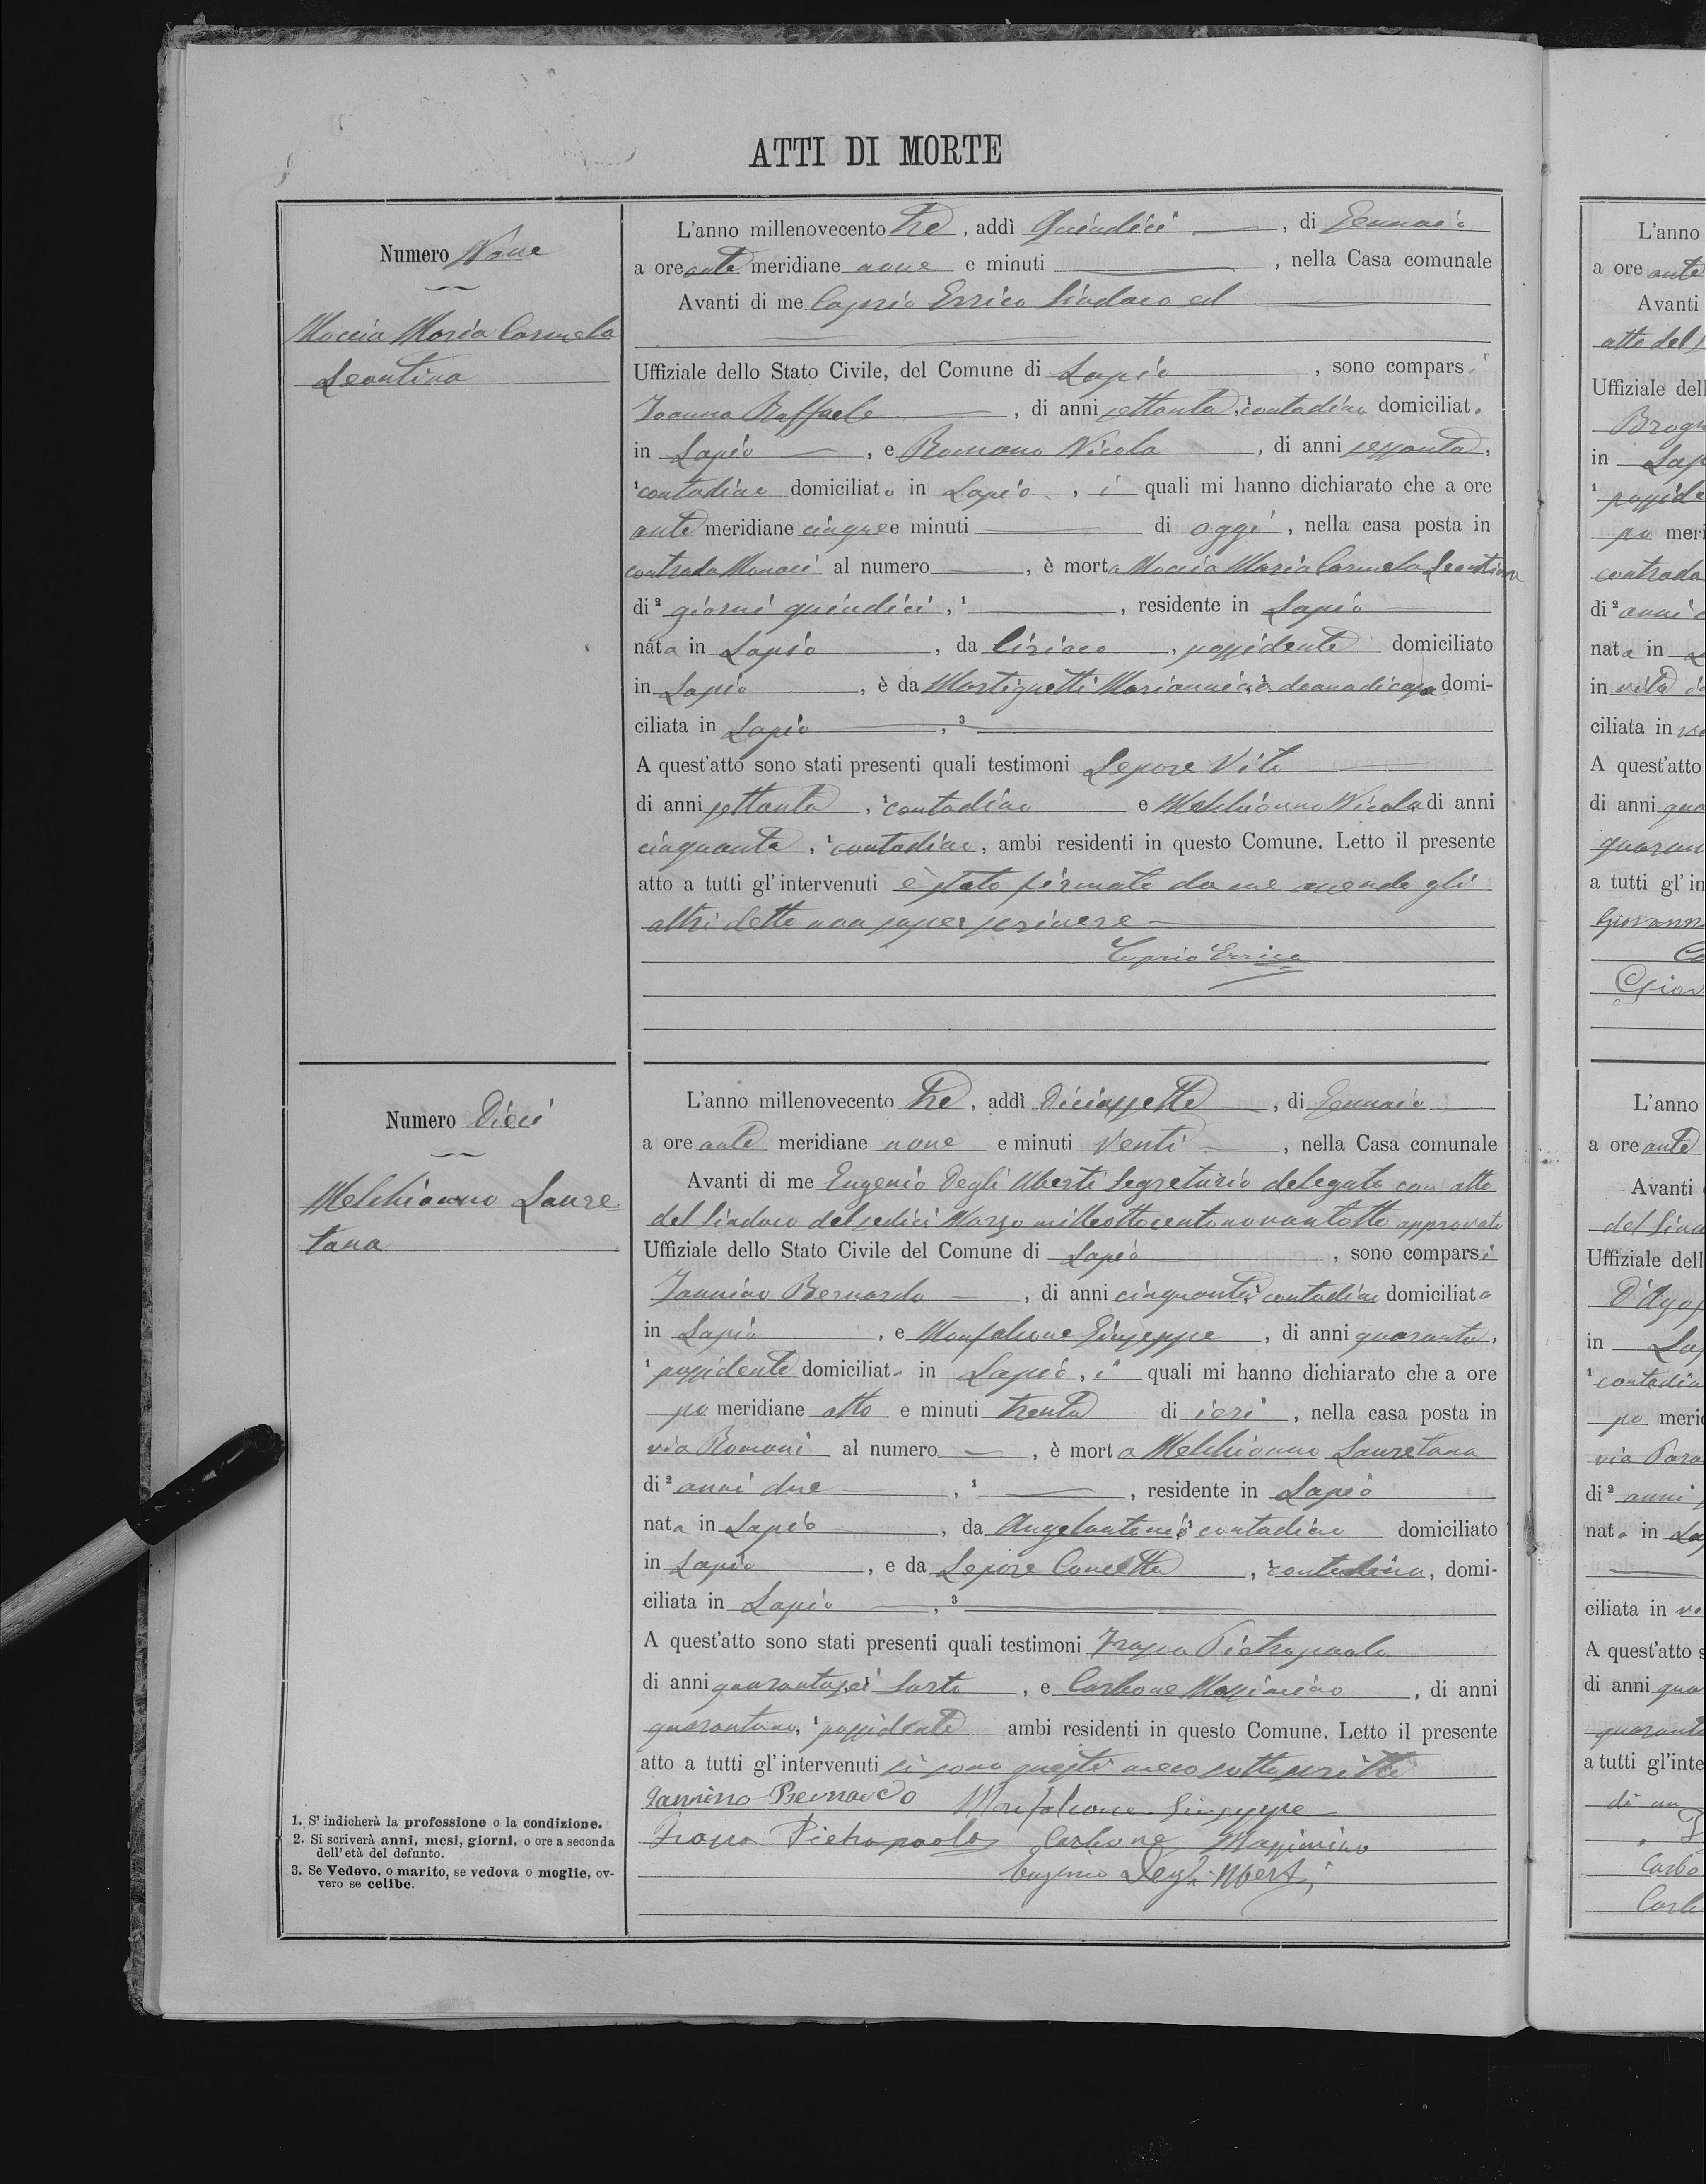 ATTI DI MORTE
Numero Nove
Moccia Maria Carmela
Leontina
L'anno millenovecento tre, addì Quindici, di Gennaio
a ore ante meridiane nove e minuti, nella Casa comunale
Avanti di me Caprio Errico Sindaco ed
Uffiziale dello Stato Civile, del Comune di Lapio, sono comparsi
Raffaele, di anni settanta, contadino domiciliato
in Lapio, e Romano Nicola, di anni sessanta,
1 contadino domiciliato in Lapio, i quali mi hanno dichiarato che a ore
ante meridiane cinque e minuti di oggi, nella casa posta in
contrada Monaci al numero, è morta Moccia Maria Carmela Leontina
di 2 giorni quindici, 1, residente in Lapio
nata in Lapio, da Ciriaco, possidente domiciliato
in Lapio, è da Martignetti Mariannina donna di casa domi-
ciliata in Lapio, 3
A quest'atto sono stati presenti quali testimoni Lepore Vito
di anni settanta, 1 contadino e Melchionno Nicola di anni
cinquanta, 1 contadino, ambi residenti in questo Comune. Letto il presente
atto a tutti gl'intervenuti è stato firmato da me avendo gli
altri detto non saper scrivere
Caprio Errico
Numero Dieci
Melchionno Laure
tana
L'anno millenovecento tre, addì Diciassette, di Gennaio
a ore ante meridiane nove e minuti venti, nella Casa comunale
Avanti di me Eugenio Degli Uberti Segretario delegato con atto
del Sindaco del sedici Marzo milleottocentonovantotto approvato
Uffiziale dello Stato Civile del Comune di Lapio, sono comparsi
Iannino Bernardo, di anni cinquanta, contadino domiciliato
in Lapio, e Monfalcone Giuseppe, di anni quaranta,
1 possidente domiciliato in Lapio, i quali mi hanno dichiarato che a ore
po meridiane otto e minuti trenta di ieri, nella casa posta in
via Romani al numero, è morta Melchionno Lauretana
di 2 anni due, 1, residente in Lapio
nata in Lapio, da Angelantonio, contadino domiciliato
in Lapio, e da Lepore Concetta, 1 contadina, domi-
ciliata in Lapio, 3
A quest'atto sono stati presenti quali testimoni Pietropaolo
di anni quarantasei sarto, e Carbone Massimino, di anni
quarantuno, 1 possidente ambi residenti in questo Comune. Letto il presente
atto a tutti gl'intervenuti si sono questi meco sottoscritti
Iannino Bernardo Monfalcone Giuseppe
Pietropaolo Carbone Massimino
Eugenio Degli Uberti
1. S'indicherà la professione o la condizione.
2. Si scriverà anni, mesi, giorni, o ore a seconda
dell'età del defunto.
3. Se Vedovo, o marito, se vedova o moglie, ov-
vero se celibe.
L'anno
a ore ante
Avanti
atto del
Uffiziale dell
in Lap
1 posside
po meri
contrada
di 2 anni
nata in
in vita
ciliata in
A quest'atto
di anni qua
quaran
a tutti gl'in
Giovann
L'anno
a ore ante
Avanti
del Sin
Uffiziale dell
D'Ago
in Lap
1 contadin
po meri
via
di 2 anni
nato in La
ciliata in
A quest'atto s
di anni qua
quarant
a tutti gl'inte
Carbo
Carb